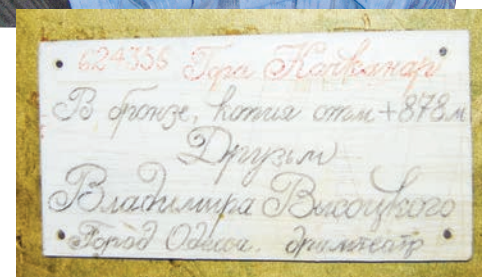 624356 Гора Качканар
В бронзе, копия отм +878м
Друзьям
Владимира Высоцкого
Город Одесса.